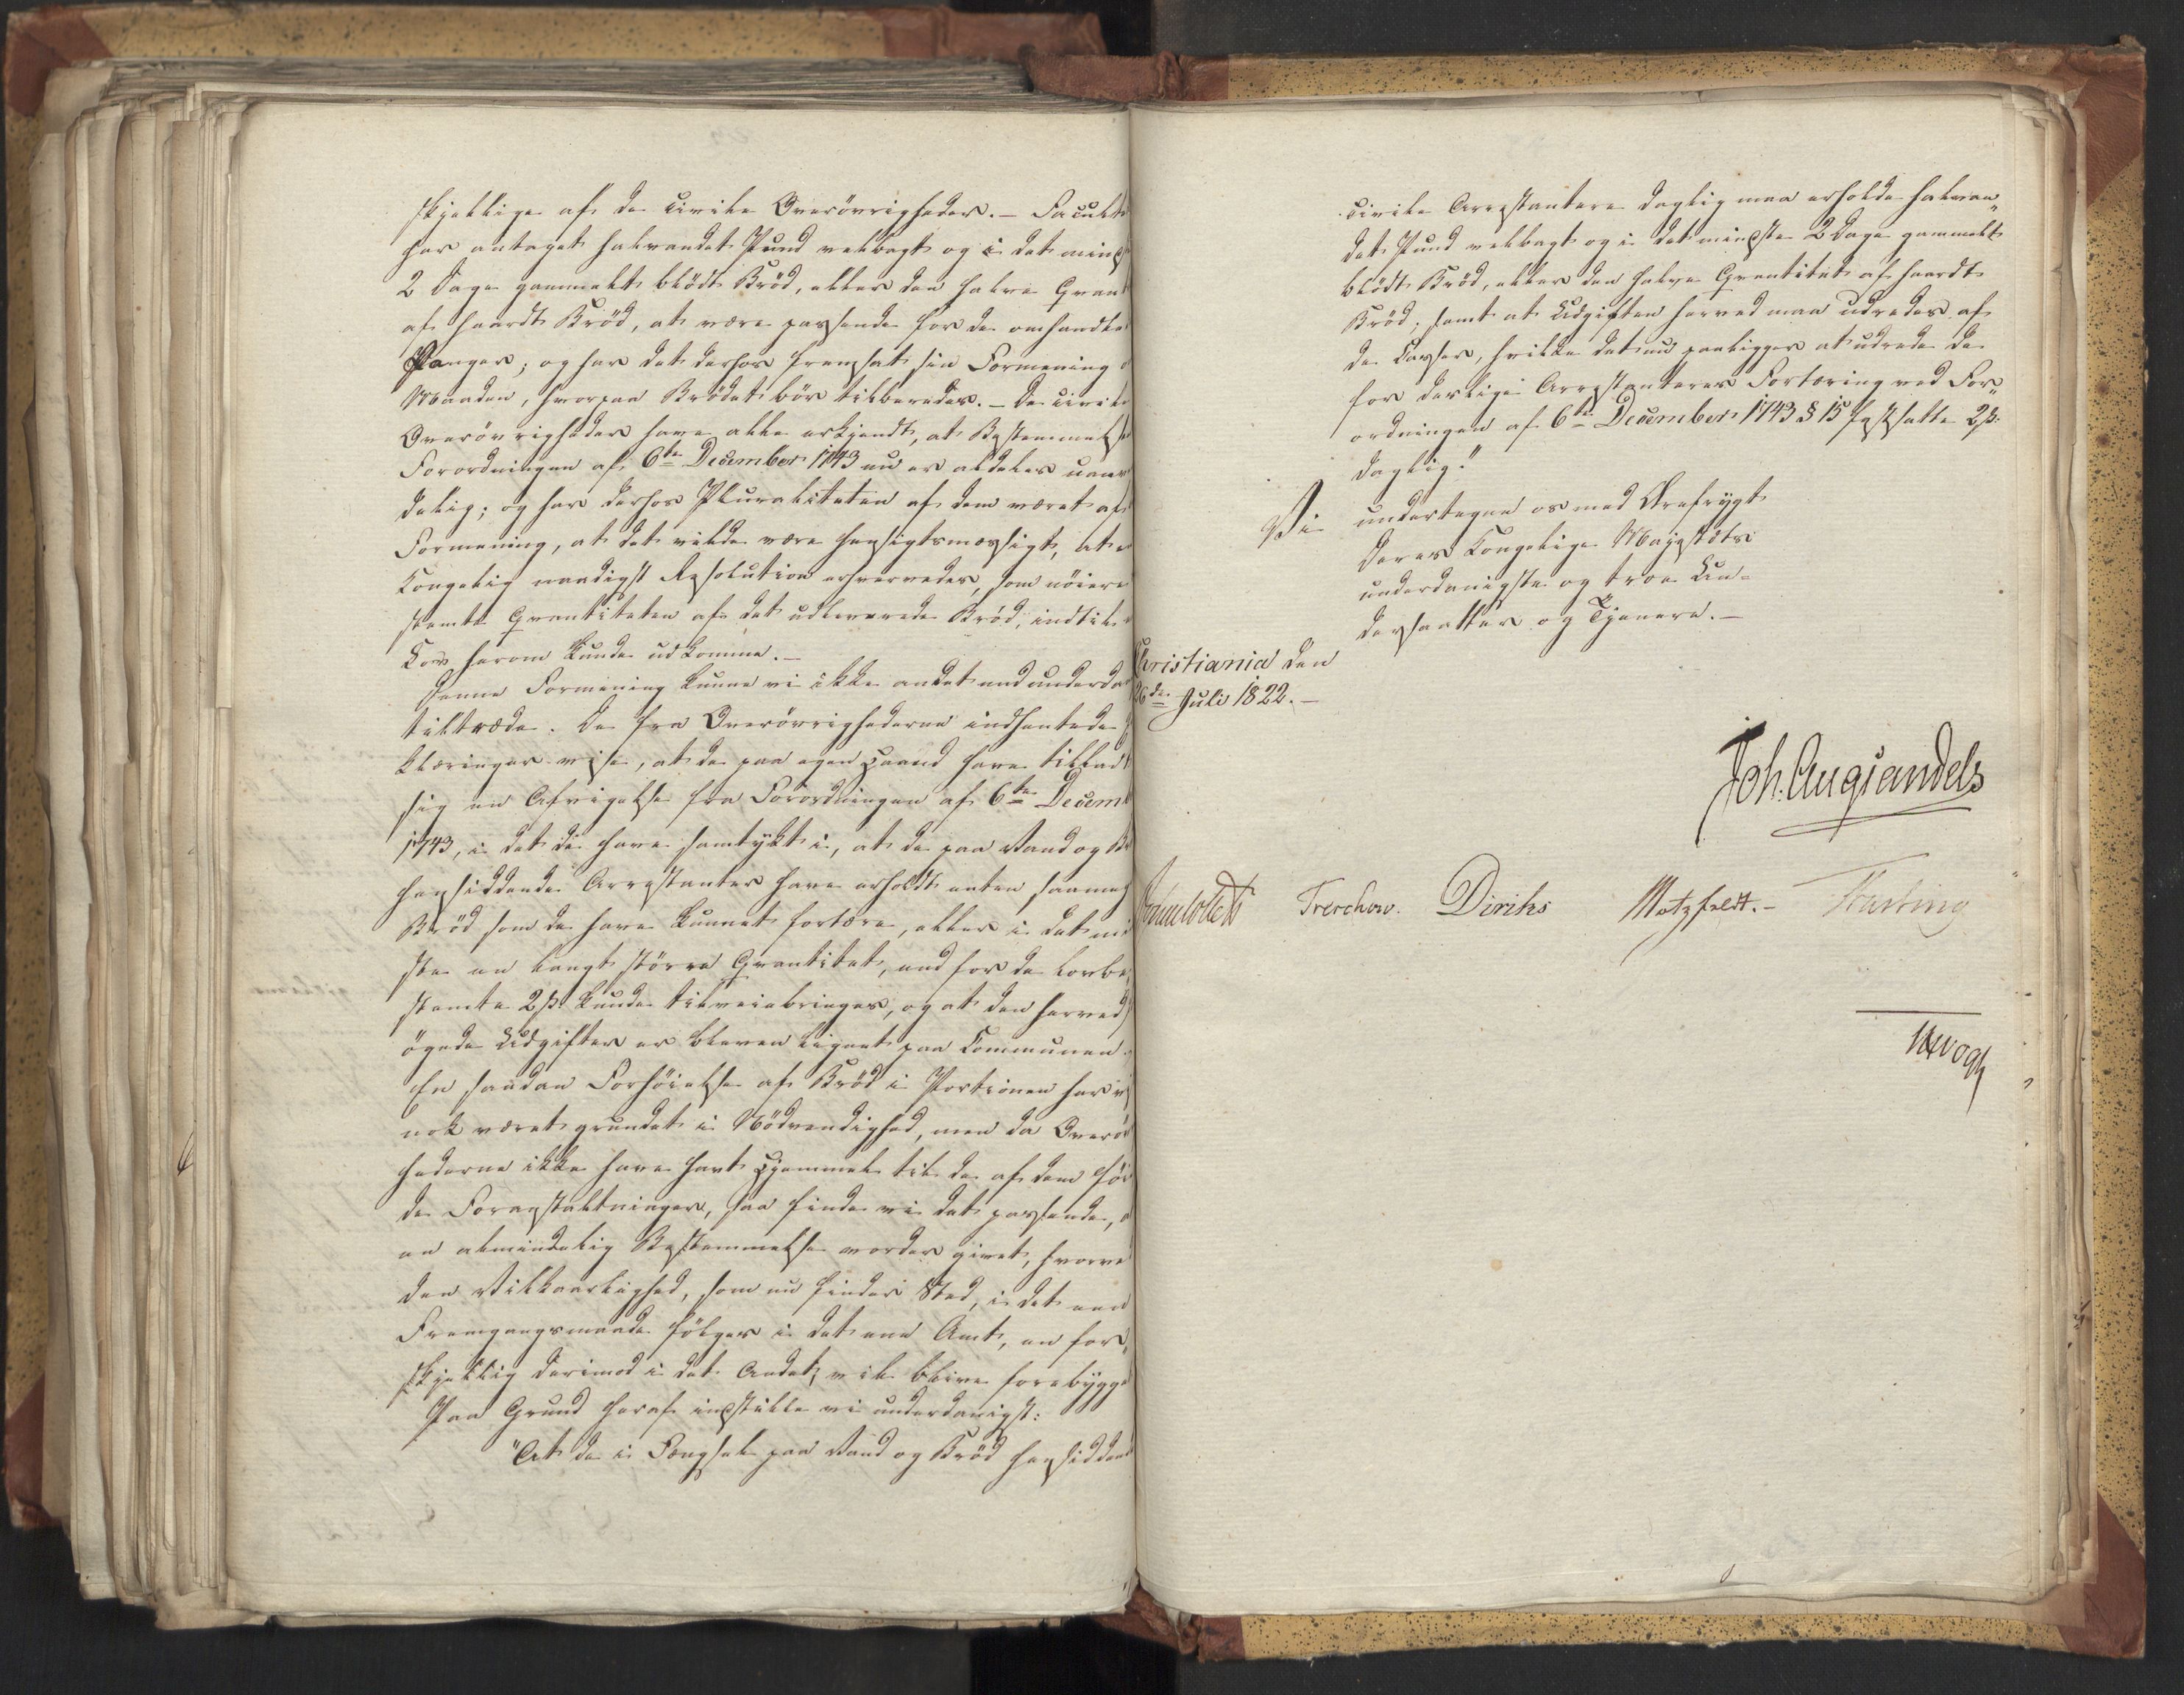 skjellige af de civile Overövrigheder. – Facultet
har antaget halvandet Pund velbagt og i det mindste
2 Dage gammelt blödt Bröd, eller den halve Qvant
af haardt Bröd, at være passende for de omhandlede
Fanger; og har det derhos fremsat sin Formening
Maaden, hvorpaa Brödet bör tilberedes. – De civile
Overövrigheder have alle erkjendt, at Bestemmelsen
Forordningen af 6te December 1743 nu er aldeles uanven
delig; og har derhos Pluraliteten af dem været af
Formening, at det vilde være hensigtsmæssigt, at en
Kongelig naadigst Resolution erhvervedes, som nöiere
stemte Qvantiteten af det udleverede Bröd, indtil
Lov herom kunde udkomme. –
Denne Formening kunne vi ikke andet end underda
tiltræde. De fra Overövrighederne indhentede
klæringer vise, at de paa egen Haand have tilladt
sig en Afvigelse fra Forordningen af 6te Decemb
1743, i det de have samtykt i, at de paa Vand og Br
hensiddende Arrestanter have erholdt enten saameget
Bröd som de have kunnet fortære, eller i det mi
ste en langt större Qvantitet, end for de lovbe-
stemte 2 ß kunde tilveiebringes, og at den herved
ögede Udgifter er bleven lignet paa Communen.
En saadan Forhöielse af Bröd i Portionen har vi
nok været grundet i Nödvendighed, men da Overöv
hederne ikke have havt Hjemmel til de af dem föi
de Foranstaltninger, saa finde vi det passende, a
en almindelig Bestemmelse vorder givet, hvorve
den Vilkaarlighed, som nu finder Sted, i det een
Fremgangsmaade fölges i det ene Amt, en for-
skjellig derimod i det Andet, vil blive forebygget
Paa Grund heraf indstille vi underdanigst:
"At de i Fængsel paa Vand og Bröd hensiddende
civile Arrestantere daglig maa erholde halvan-
det Pund velbagt og i det mindste 2 Dage gammelt
blödt Bröd, eller den halve Qvantitet af haardt
Bröd; samt at Udgiften herved maa udredes af
de Casser, hvilke det nu paaligger at udrede de
for deslige Arrestanteres Fortæring ved For-
ordningen af 6te December 1743 § 15 fastsatte 2 ß.
daglig."
Vi undertegne os med Ærefrygt
Deres Kongelige Majestæts
underdanigste og troe Un-
dersaatter og Tjenere. –
Christiania den
26de Juli 1822. –
Joh. Aug Sandels
Sommerhielm Treschow. Diriks Motzfeldt. – Fasting
Vogt